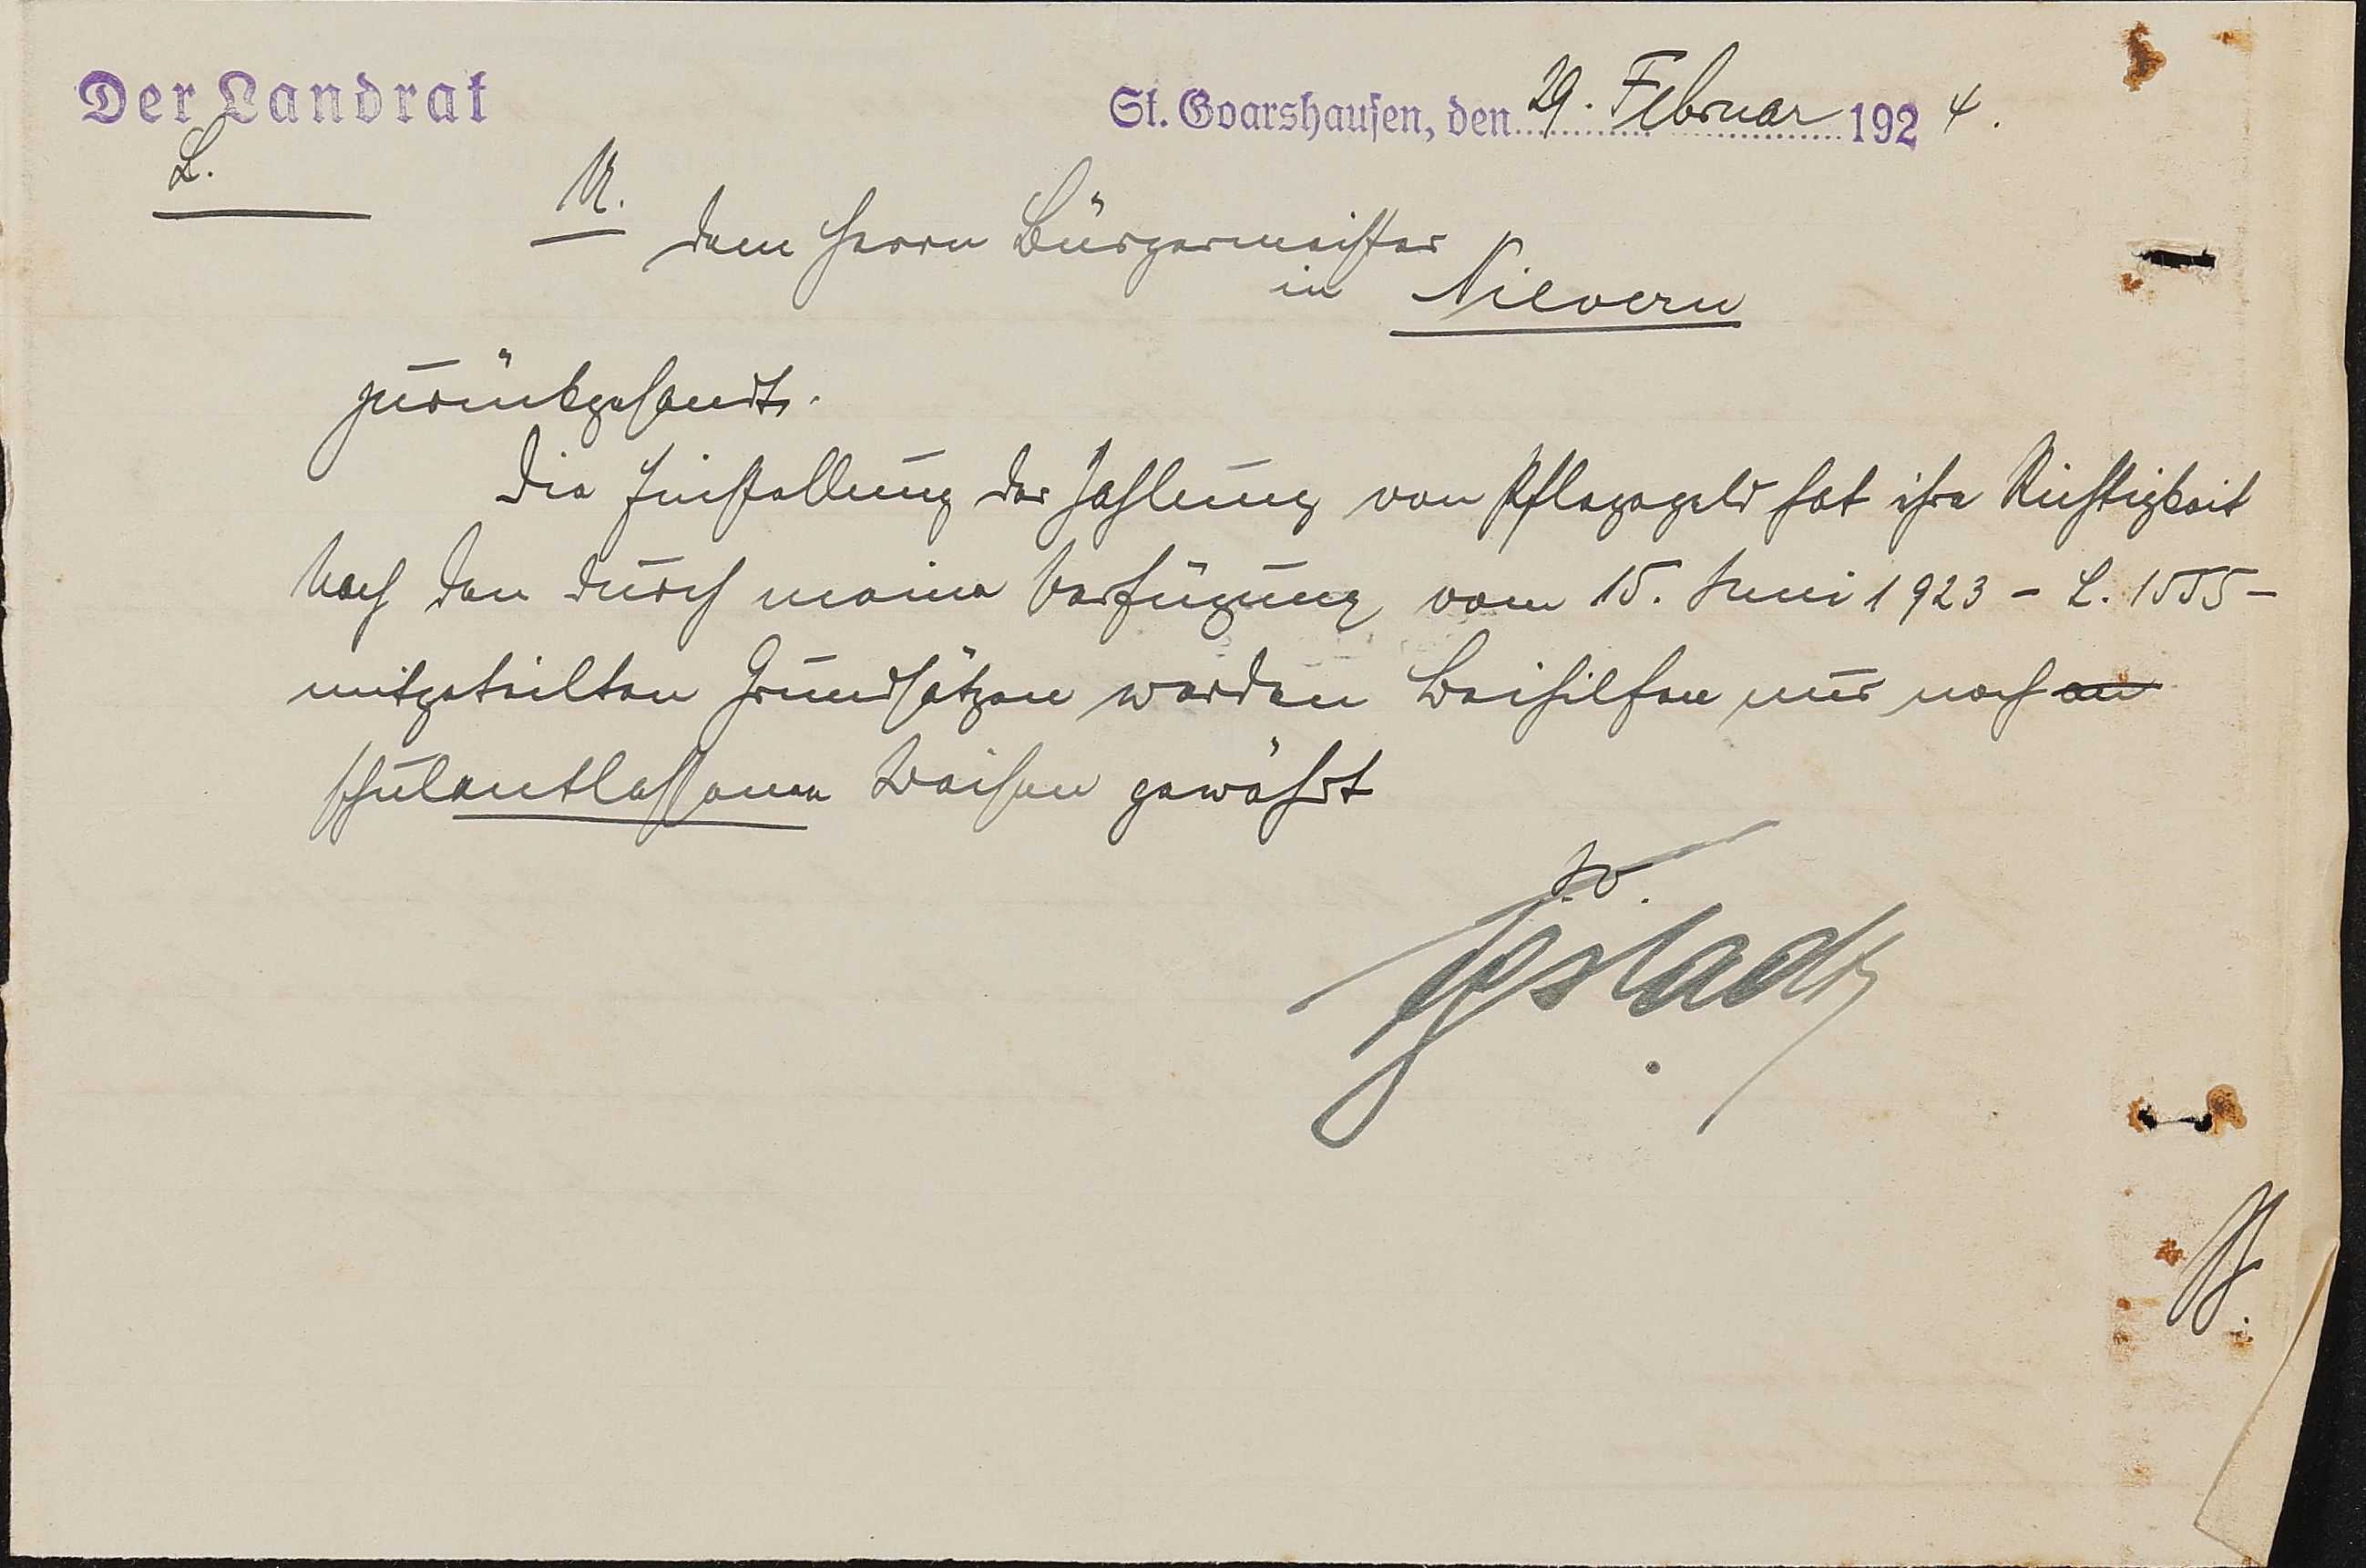 Der Landrat
St. Goarshausen, den 29. Februar 1924.
L.
U.
dem Herrn Bürgermeister
in Nievern
zurückgesandt.
Die Einstellung der Zahlung von Pflegegeld hat ihre Richtigkeit
Nach den durch meine Verfügung vom 15. Juni 1923 - L. 1555 -
mitgeteilten Grundsätzen werden Beihilfen nur noch an
schulentlassenen Waisen gewährt